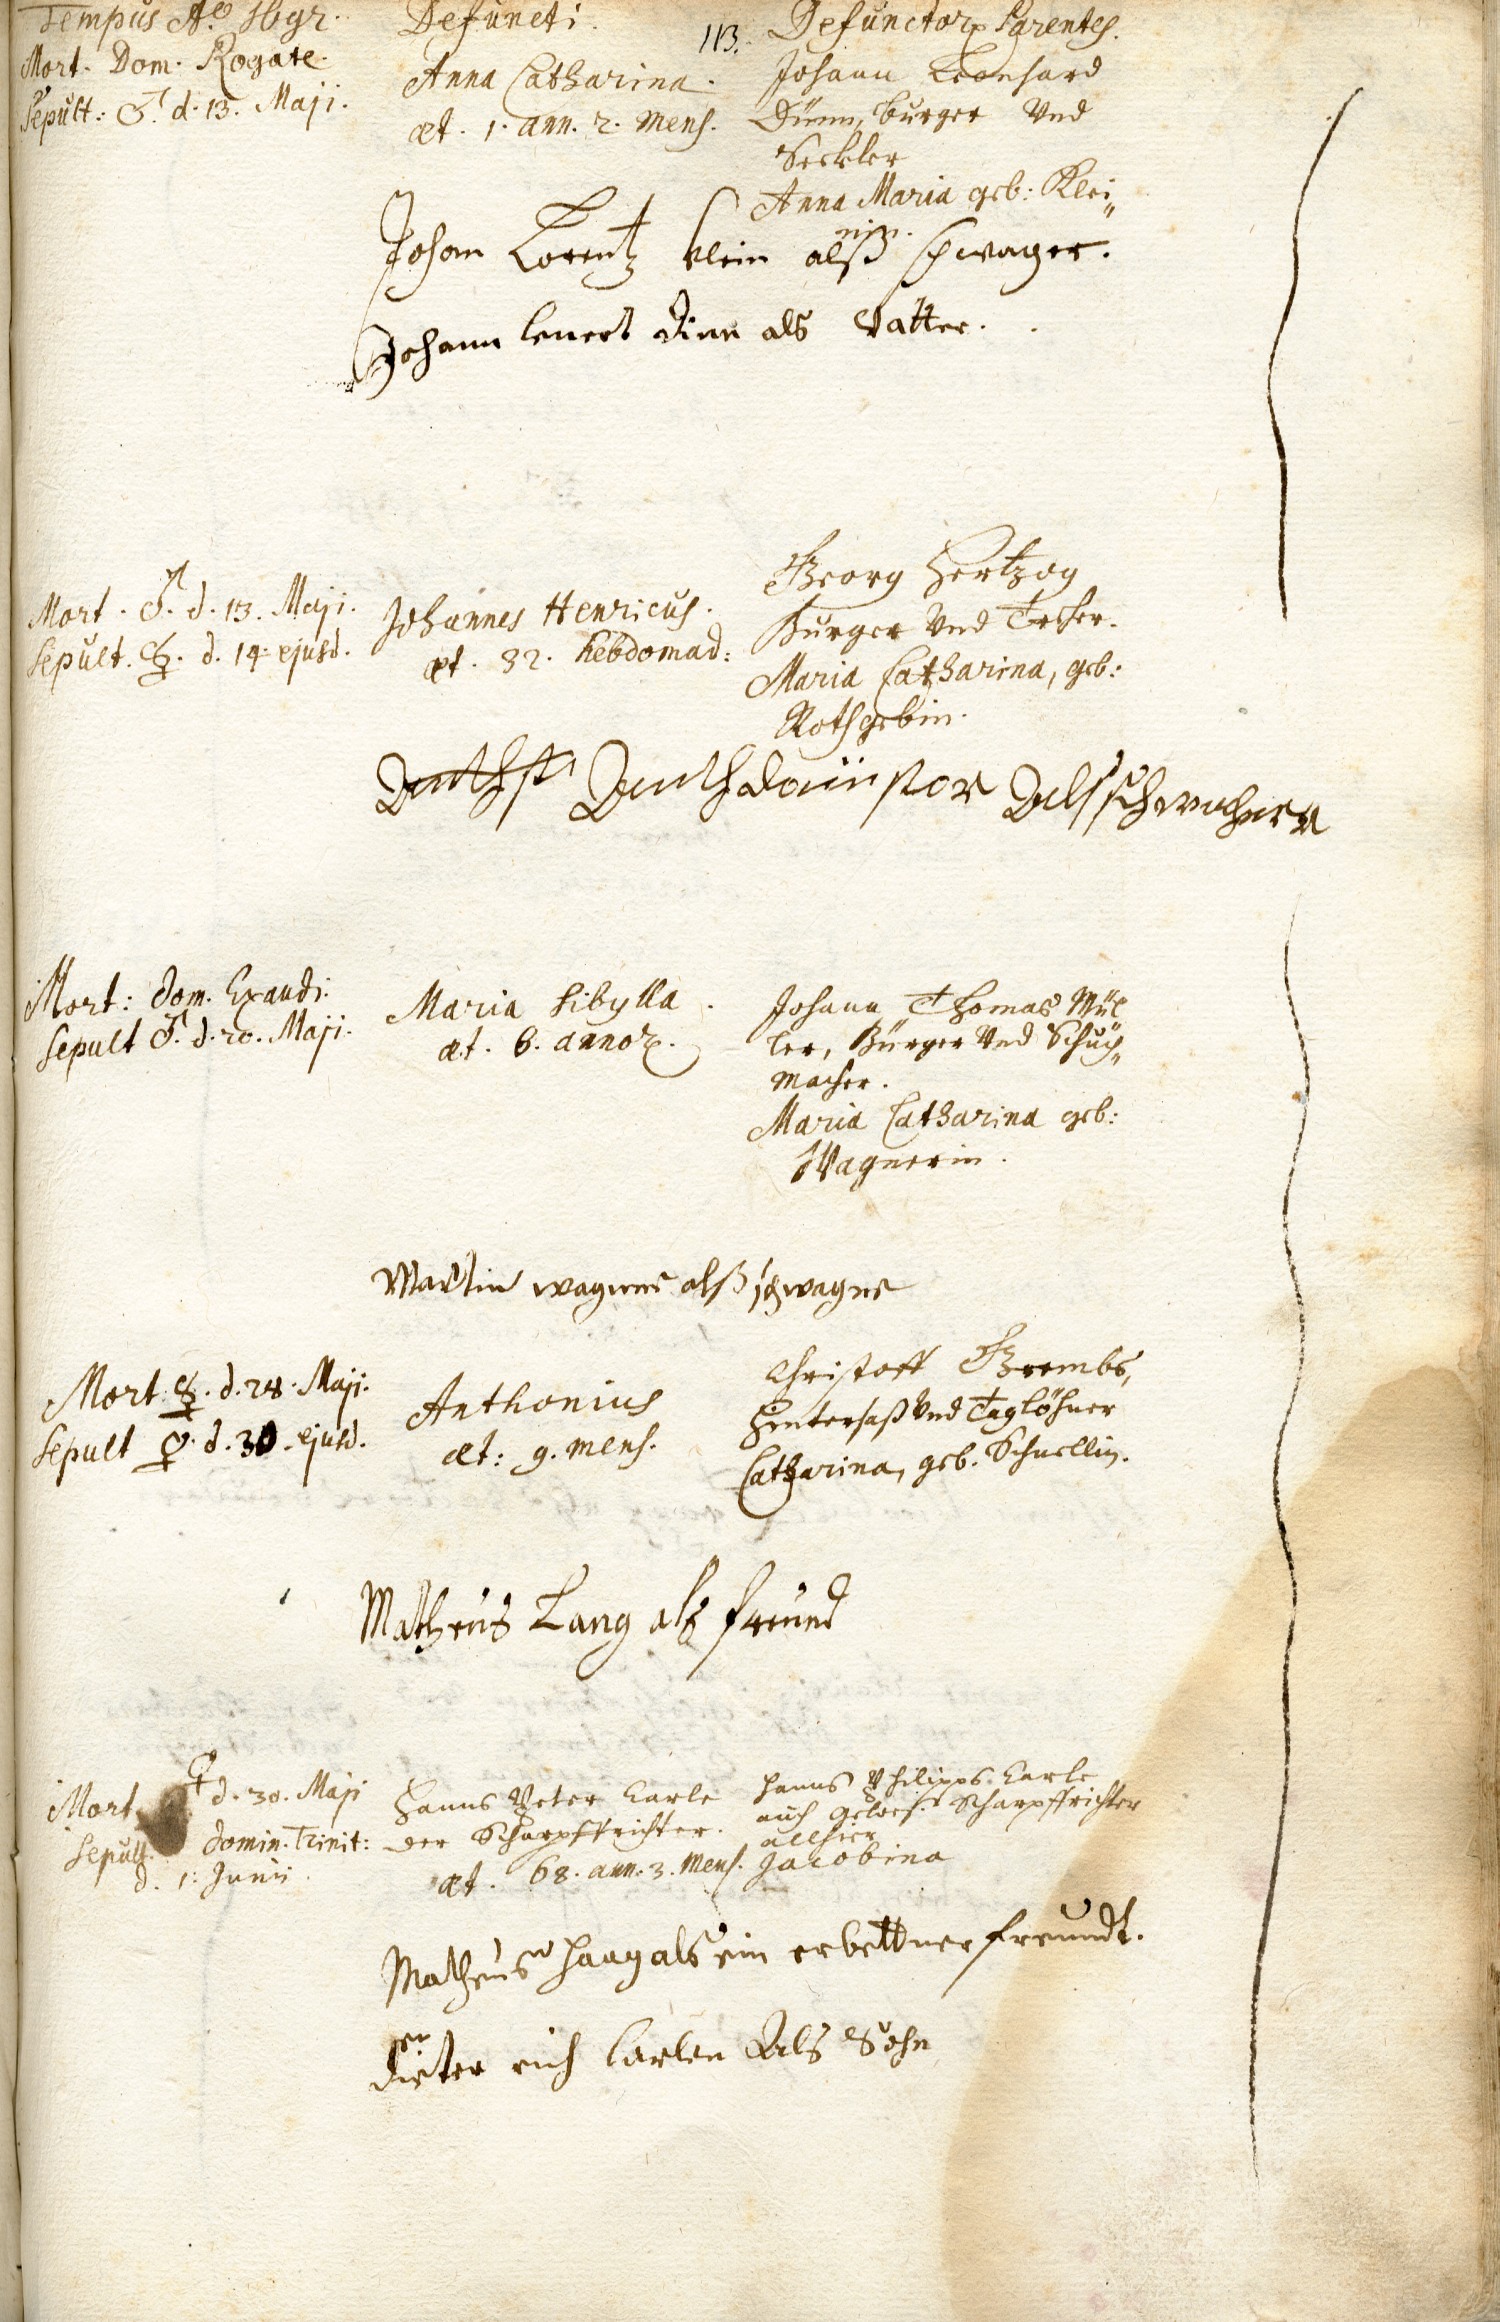 Tempus Aeo Ngr. Defuncti. 113. Defunctor. Parentes.
Mort. Dom. Rogate.
Sepult: ♂. d. 13. Maji.
Anna Catharina.
æt. 1. ann. 2. mens.
Johann Leonhard
Dünn, burger und
Seckler
Anna Maria geb: Klei„
nin.
Johan Lorentz klein alß schwager.
Johann lenert dinn als Vatter.
Mort. ♂. d. 13. Maji.
Sepult. ☿. d. 14. ejusd.
Johannes Henricus.
æt. 32. hebdomad:
Georg Hertzog
Burger und Becker.
Maria Catharina, geb:
Rothgebin.
Mort: Dom. Exaudi.
Sepult ♂. d. 20. Maji.
Maria Sibylla.
æt. 6. annor.
Johann Thomas Mül
ler, Bürger und Schuch„
macher.
Maria Catharina geb:
Wagnerin.
Martin wagner alß schwager
Mort: ☿. d. 28. Maji.
Sepult ♀. d. 30. ejusd.
Anthonius
æt: 9. mens.
Christoff Grembs,
Hintersaß und Taglöhner
Catharina, geb. Schnellin.
Matheus Lang alß freund
Mort ♀ d. 30. Maji
Sepult. Domin. Trinit:
d. 1. Junii.
Hanns Peter Carle
der Scharpffrichter.
æt. 68. ann. 3. mens.
Hanns Philipps Carle
auch gewes. Scharpffrichter
allhier
Jacobina
Matheus Haag als ein erbettner freundt.
dieter rich Carlen Als Sohn